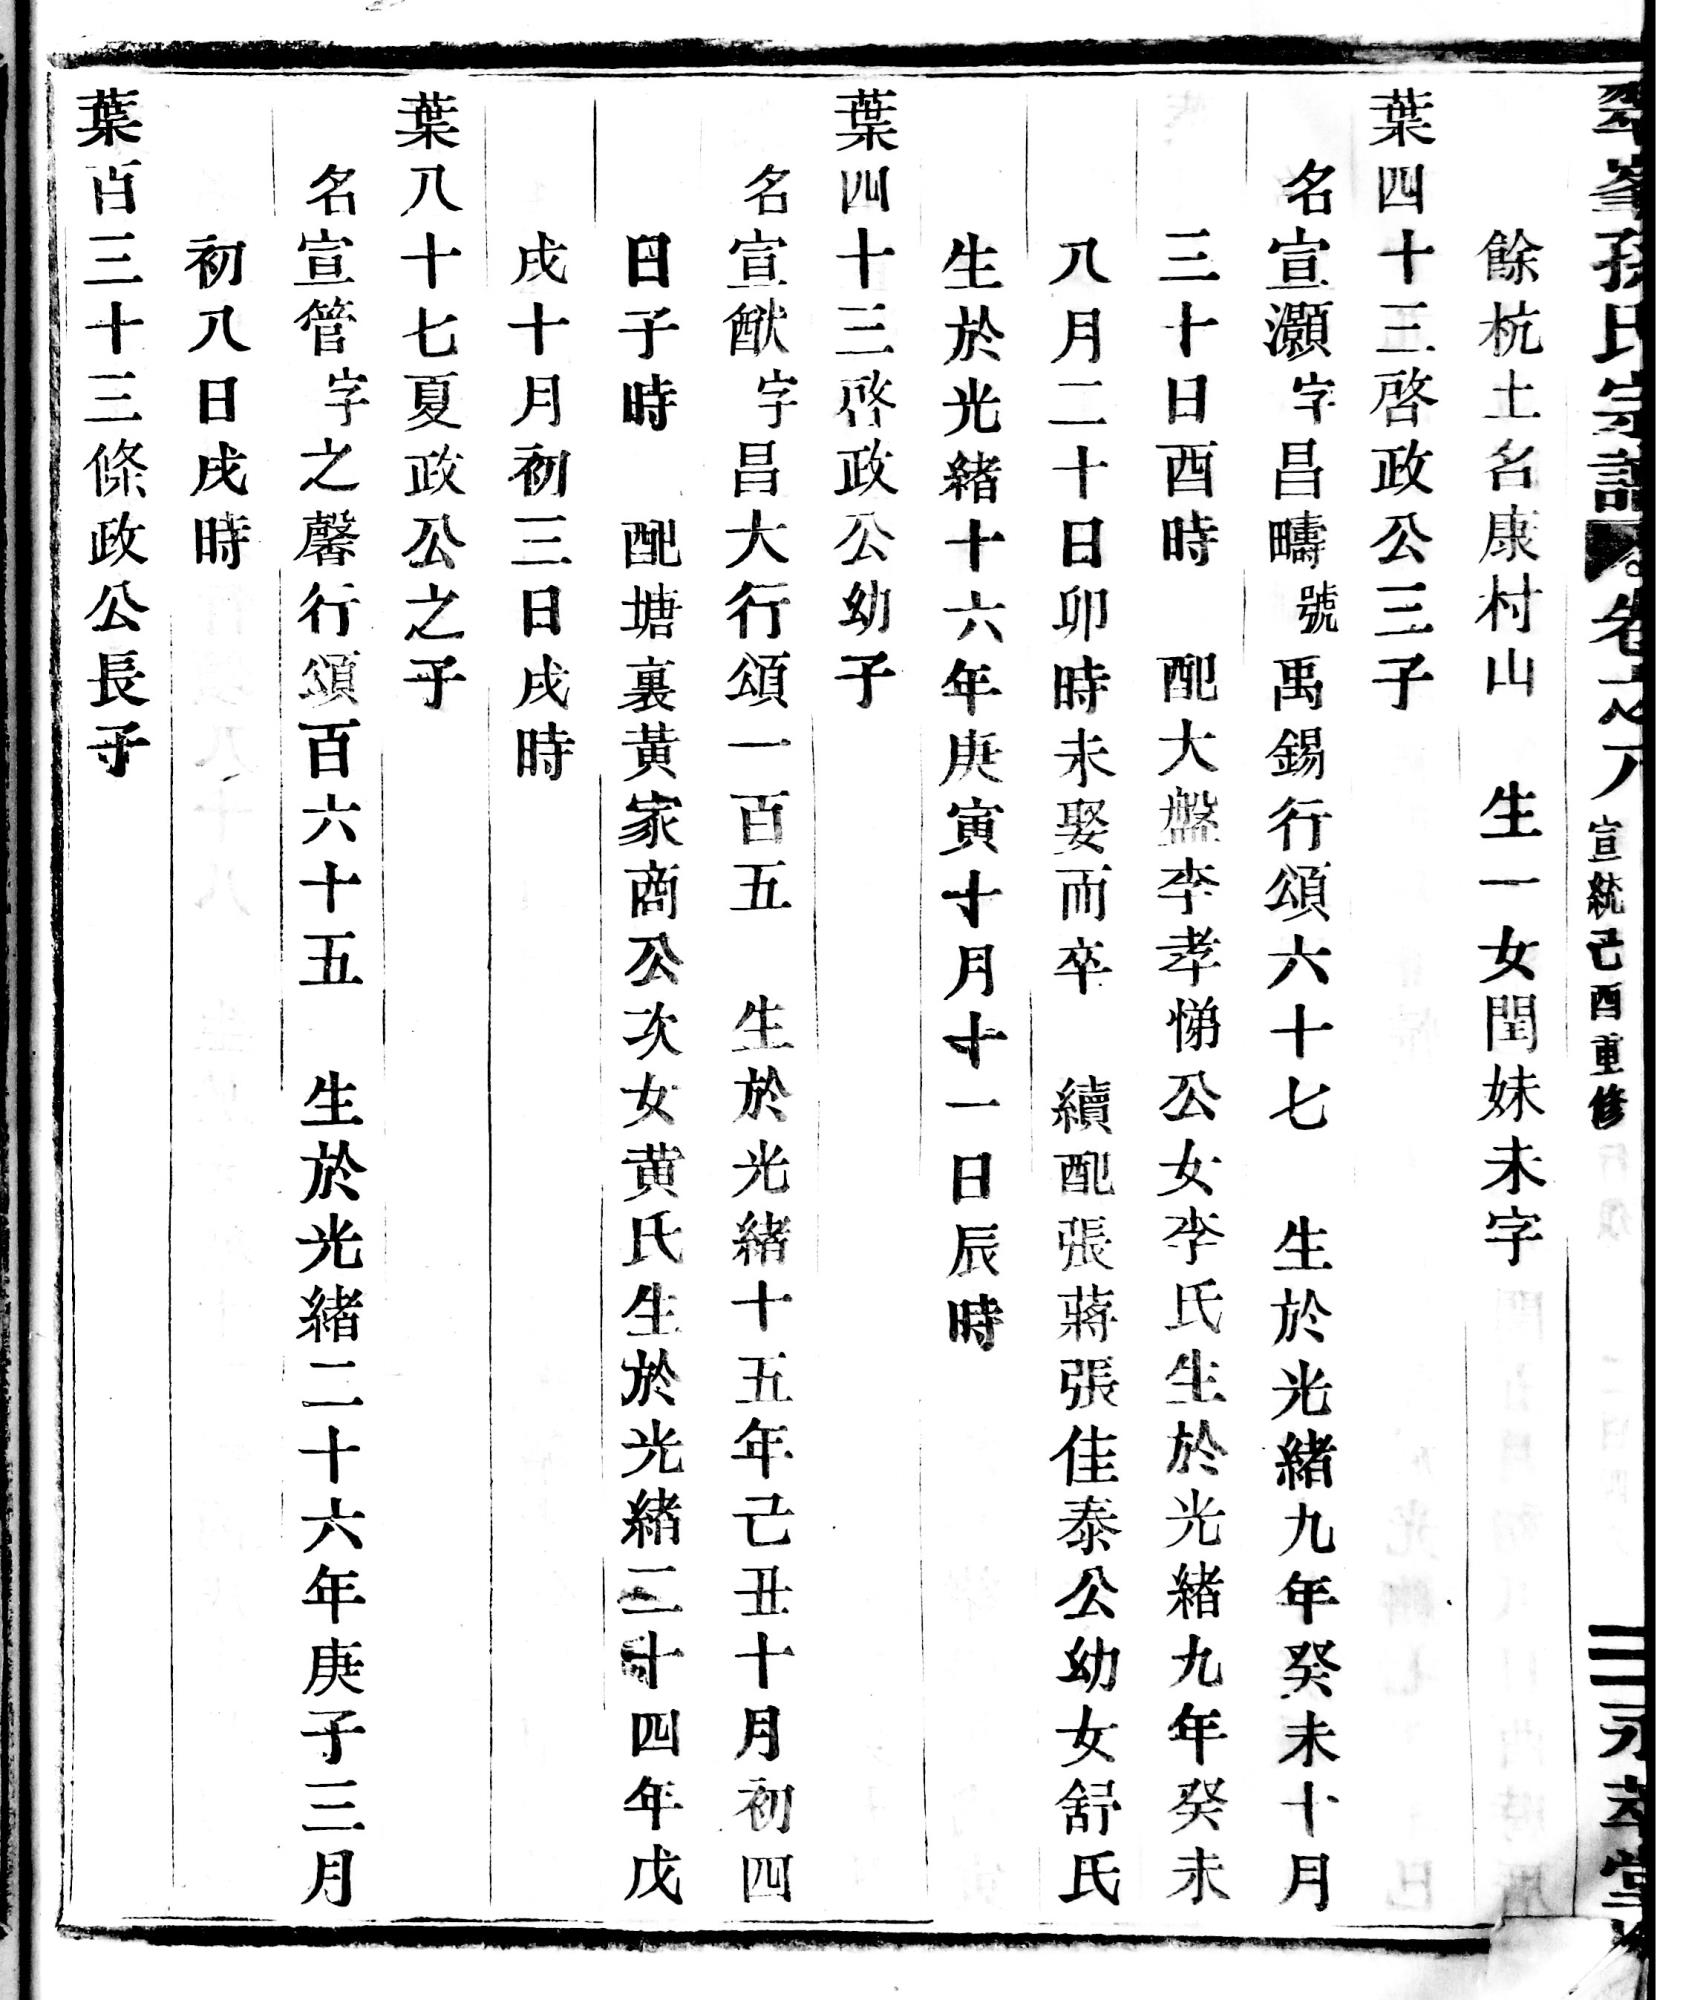 翠峯孫氏宗譜 卷之八 宣統己酉重修 二 永萃堂
餘杭土名康村山 生一女閏妹未字
葉四十三啓政公三子
名宣灝字昌疇號禹錫行頌六十七 生於光緒九年癸未十月
三十日酉時 配大盤李孝悌公女李氏生於光緒九年癸未
八月二十日卯時未娶而卒 續配張蔣張佳泰公幼女舒氏
生於光緒十六年庚寅十月十一日辰時
葉四十三啓政公幼子
名宣猷字昌大行頌一百五 生於光緒十五年己丑十月初四
日子時 配塘裏黃家商公次女黃氏生於光緒二十四年戊
戌十月初三日戌時
葉八十七夏政公之子
名宣管字之馨行頌百六十五 生於光緒二十六年庚子三月
初八日戌時
葉百三十三條政公長子